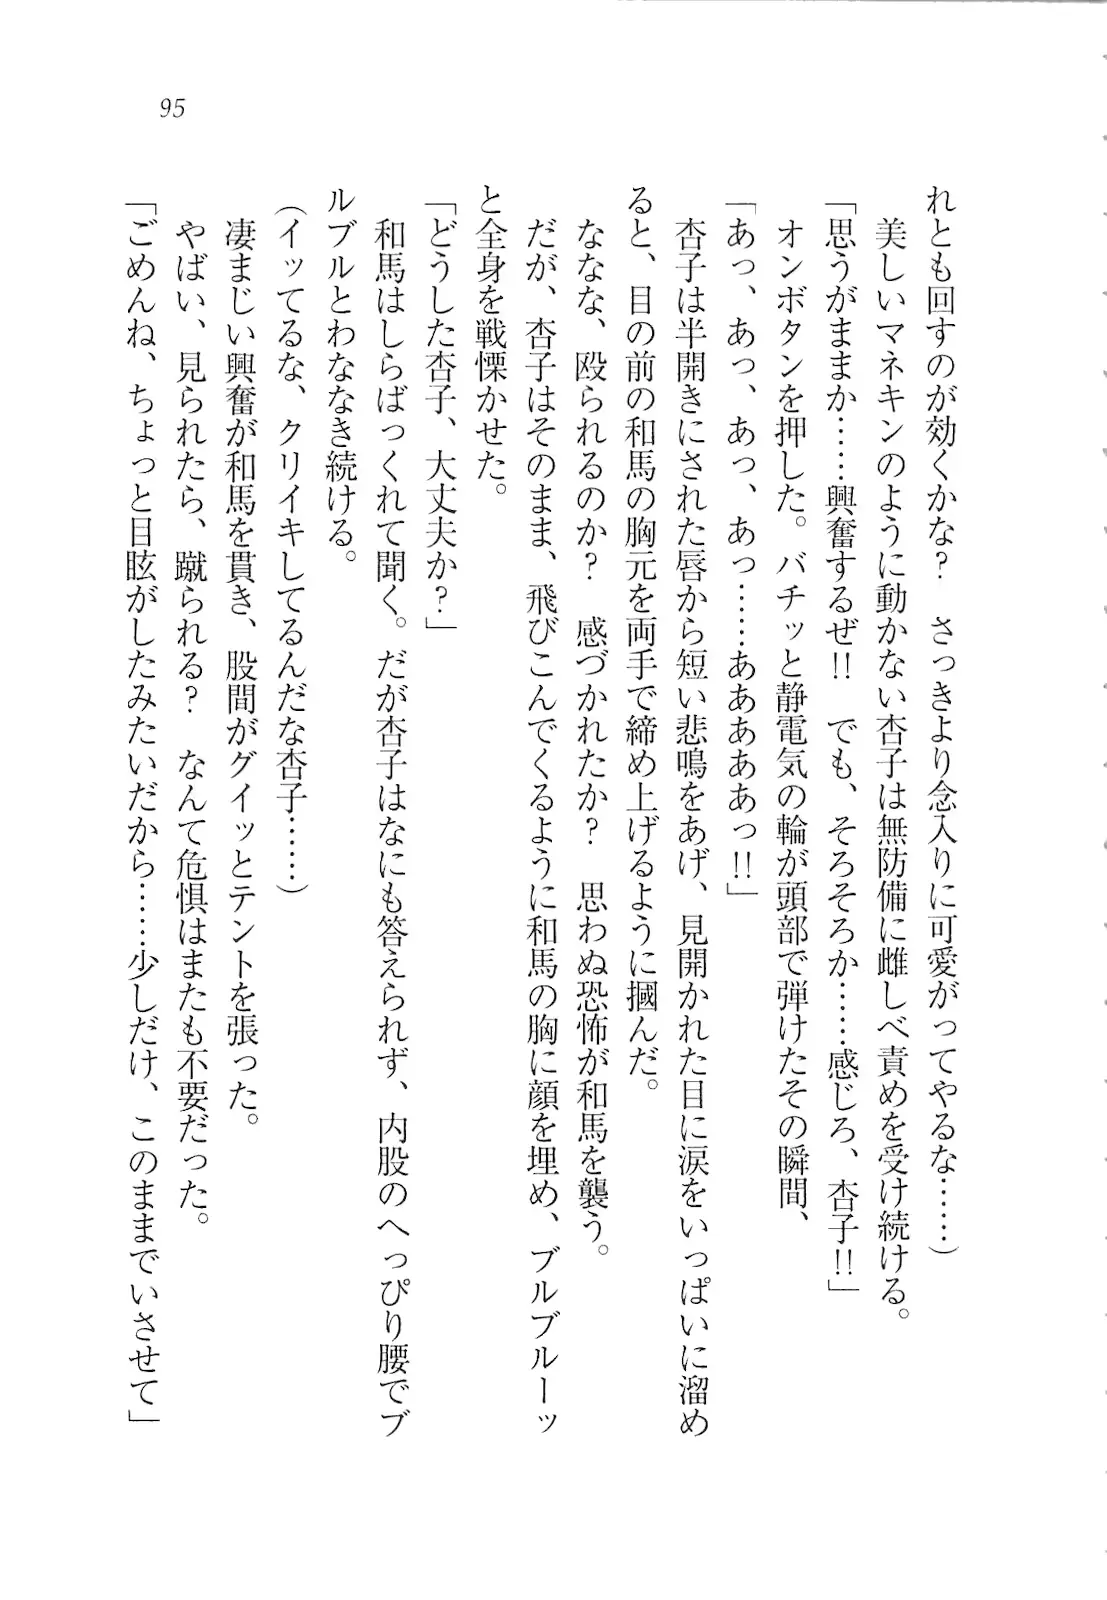 95
れとも回すのが効くかな?　さっきより念入りに可愛がってやるな……)
美しいマネキンのように動かない杏子は無防備に雌しべ責めを受け続ける。
「思うがままか……興奮するぜ!!　でも、そろそろか……感じろ、杏子!!」
オンボタンを押した。バチッと静電気の輪が頭部で弾けたその瞬間、
「あっ、あっ、あっ、あっ……あああああっ!!」
杏子は半開きにされた唇から短い悲鳴をあげ、見開かれた目に涙をいっぱいに溜め
ると、目の前の和馬の胸元を両手で締め上げるように摑んだ。
ななな、殴られるのか?　感づかれたか?　思わぬ恐怖が和馬を襲う。
だが、杏子はそのまま、飛びこんでくるように和馬の胸に顔を埋め、ブルブルーッ
と全身を戦慄かせた。
「どうした杏子、大丈夫か?」
和馬はしらばっくれて聞く。だが杏子はなにも答えられず、内股のへっぴり腰でブ
ルブルとわななき続ける。
(イッてるな、クリイキしてるんだな杏子……)
凄まじい興奮が和馬を貫き、股間がグイッとテントを張った。
やばい、見られたら、蹴られる?　なんて危惧はまたも不要だった。
「ごめんね、ちょっと目眩がしたみたいだから……少しだけ、このままでいさせて」